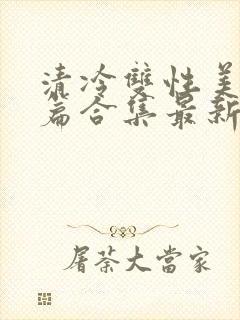 清冷雙性美
篇合集最新
屠荼大當家